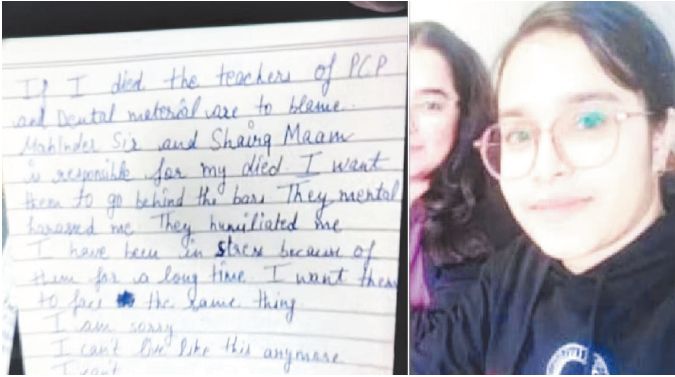 If I died the teachers of PCP
and Dental material are to blame.
Mahinder Sir and Shairq Maam
is responsible for my died. I want
them to go behind the bars They mental
harassed me. They humiliated me
I have been in stress because of
them for a long time I want them
to face the same thing
I am sorry
I can't live like this anymore
I can't